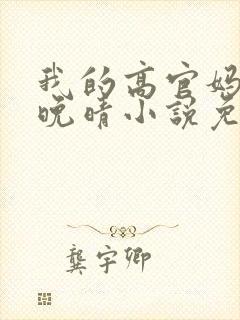 我的高官妈
晚晴小说免
龚宇卿